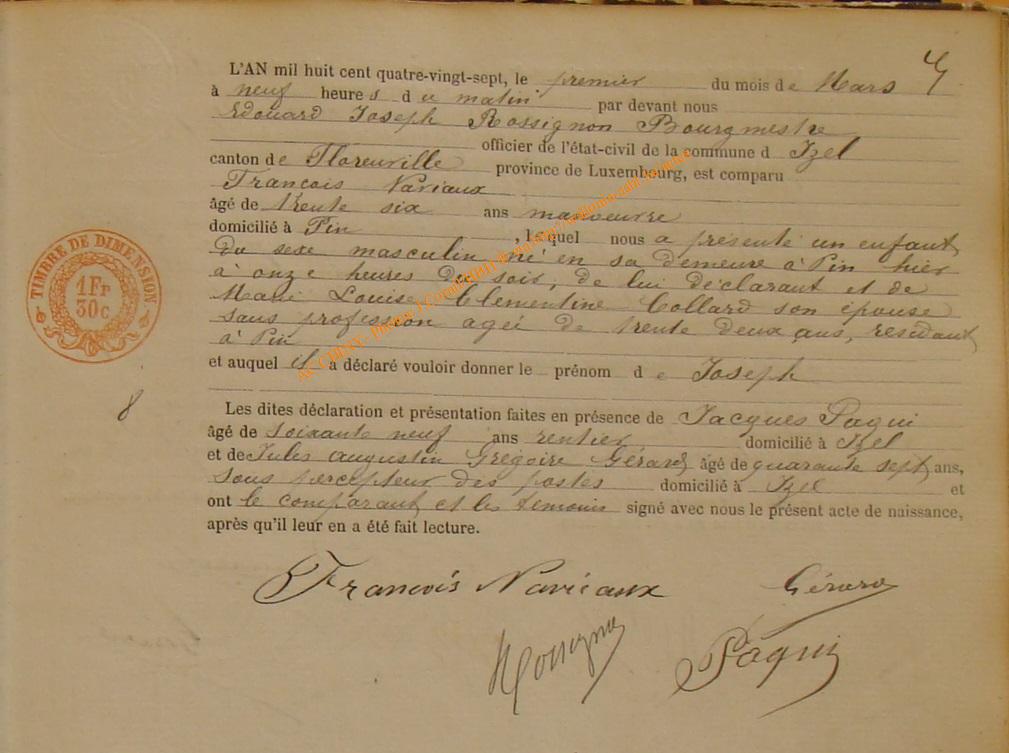 L'AN mil huit cent quatre-vingt-sept, le premier du mois de Mars
à neuf heures du matin par devant nous
Edouard Joseph Rossignon Bourgmestre
officier de l'état-civil de la commune d Izel
canton de Florenville province de Luxembourg, est comparu
François Naviaux
âgé de trente six ans manoeuvre
domicilié à Pin , lequel nous a présenté un enfant
du sexe masculin né en sa demeure à Pin hier
à onze heures du soir, de lui déclarant et de
Marie Louise Clémentine Collard son épouse
sans profession agée de trente deux ans, résidant
à Pin
et auquel il a déclaré vouloir donner le prénom de Joseph
TIMBRE DE DIMENSION
1 Fr
30 c
8
Les dites déclaration et présentation faites en présence de Jacques Paqui
âgé de soixante neuf ans rentier domicilié à Izel
et de Jules Augustin Grégoire Gérard âgé de quarante sept ans,
sous percepteur des postes domicilié à Izel et
ont le comparant et les témoins signé avec nous le présent acte de naissance,
après qu'il leur en a été fait lecture.
François Naviaux Gérard
Rossignon Paqui